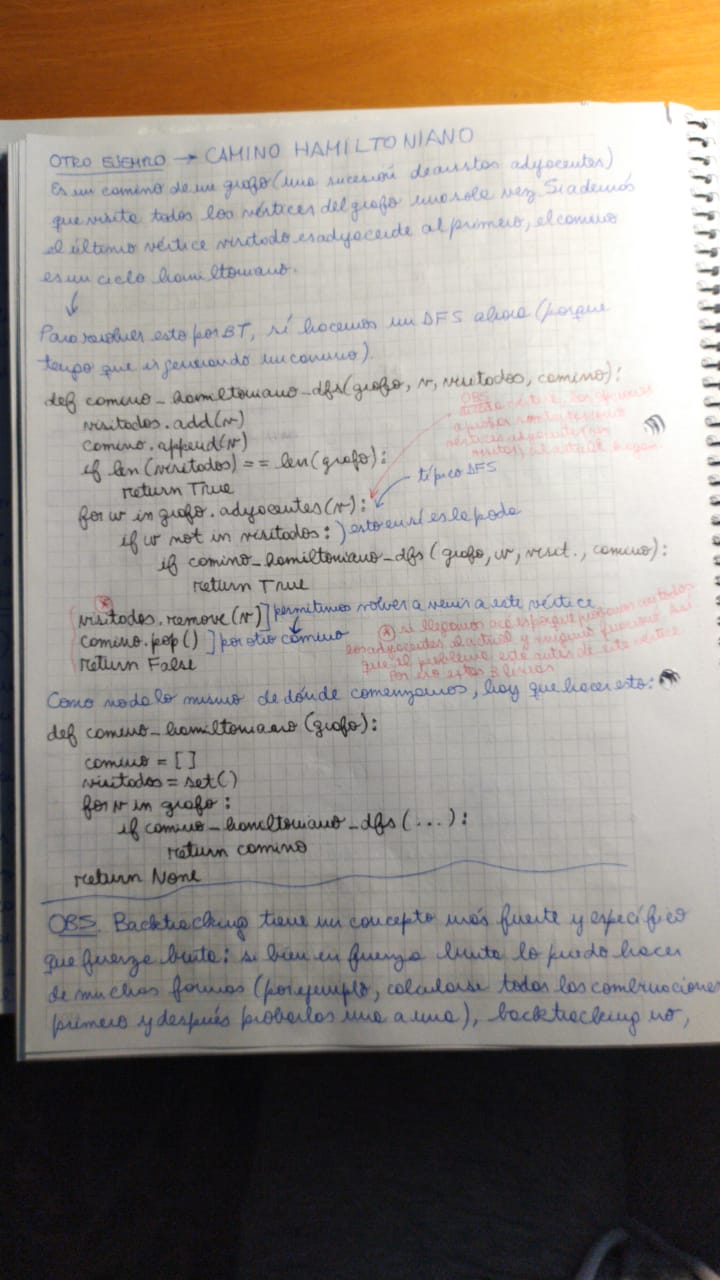 OTRO EJEMPLO → CAMINO HAMILTONIANO
Es un camino de un grafo (una sucesión de aristas adyacentes)
que visita todos los vértices del grafo una sola vez. Si además
el último vértice visitado es adyacente al primero, el camino
es un ciclo hamiltoniano.
Para resolver esto por BT, sí hacemos un DFS ahora (porque
tengo que ir generando un camino).
def camino_hamiltoniano_dfs(grafo, v, visitados, camino):
visitados.add(v)
camino.append(v)
OBS
if len(visitados) == len(grafo):
return True
típico DFS
for w in grafo.adyacentes(v):
if w not in visitados: } esto en sí es la poda
if camino_hamiltoniano_dfs(grafo, w, visit., camino):
return True
visitados.remove(v) ] permitimos volver a venir a este vértice
camino.pop() ] por otro camino
return False
* si llegamos acá es porque probamos con todos
los adyacentes al actual y ninguno funcionó. Así
que el problema está antes de este vértice
Por eso estas 3 líneas
Como no da lo mismo de dónde comenzamos, hay que hacer esto:
def camino_hamiltoniano(grafo):
camino = []
visitados = set()
for v in grafo:
if camino_hamiltoniano_dfs(...):
return camino
return None
OBS. Backtracking tiene un concepto más fuerte y específico
que fuerza bruta: si bien en fuerza bruta lo puedo hacer
de muchas formas (por ejemplo, calcularse todas las combinaciones
primero y después probarlas una a una), backtracking no,